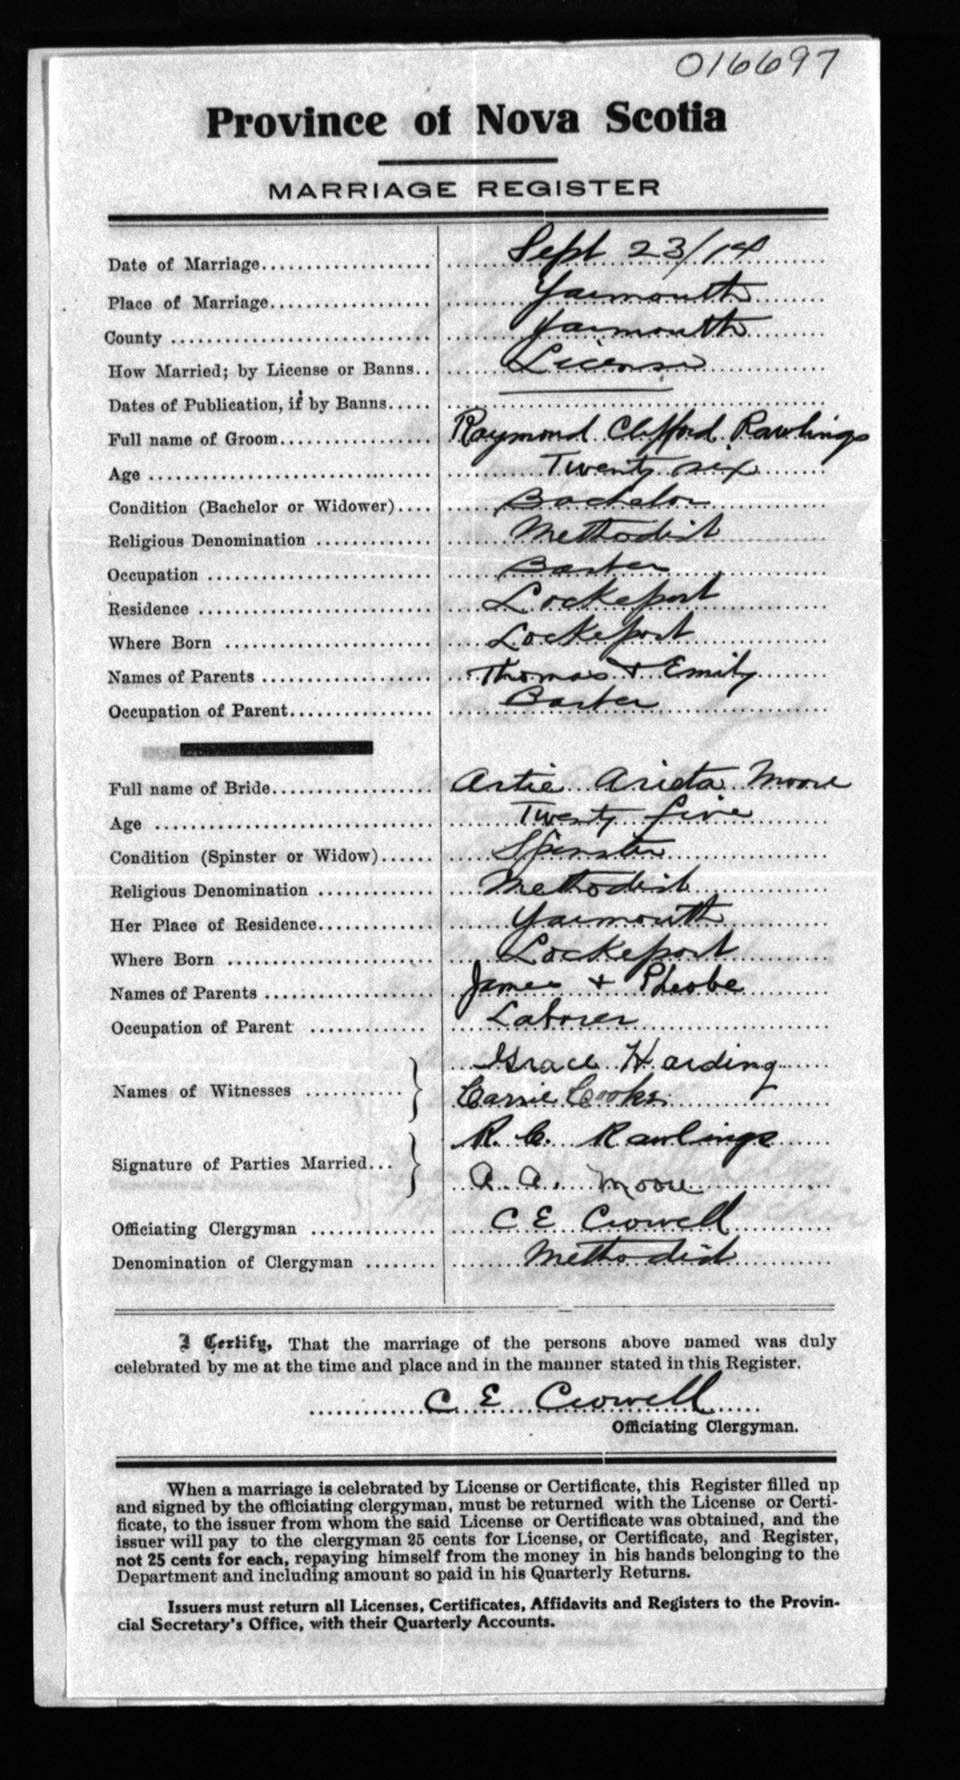 016697
Province of Nova Scotia
MARRIAGE REGISTER
Date of Marriage................... Sept 23/14
Place of Marriage.................. Yarmouth
County ............................. Yarmouth
How Married; by License or Banns.. License
Dates of Publication, if by Banns.....
Full name of Groom................. Raymond Clifford Rawlings
Age ................................ Twenty six
Condition (Bachelor or Widower).... Bachelor
Religious Denomination ............. Methodist
Occupation ......................... Barber
Residence .......................... Lockeport
Where Born ......................... Lockeport
Names of Parents ................... Thomas + Emily
Occupation of Parent................ Barber
Full name of Bride.................. Artie Arieta Moore
Age ................................ Twenty five
Condition (Spinster or Widow)...... Spinster
Religious Denomination ............. Methodist
Her Place of Residence............. Yarmouth
Where Born ......................... Lockeport
Names of Parents ................... James + Pheobe
Occupation of Parent ............. Laborer
Grace Harding
Names of Witnesses ...........
Carrie Cooke
R. C. Rawlings
Signature of Parties Married...
A. A. Moore
Officiating Clergyman .............. C E Crowell
Denomination of Clergyman ........ Methodist
I Certify, That the marriage of the persons above named was duly
celebrated by me at the time and place and in the manner stated in this Register.
C E Crowell
Officiating Clergyman.
When a marriage is celebrated by License or Certificate, this Register filled up
and signed by the officiating clergyman, must be returned with the License or Certi-
ficate, to the issuer from whom the said License or Certificate was obtained, and the
issuer will pay to the clergyman 25 cents for License, or Certificate, and Register,
not 25 cents for each, repaying himself from the money in his hands belonging to the
Department and including amount so paid in his Quarterly Returns.
Issuers must return all Licenses, Certificates, Affidavits and Registers to the Provin-
cial Secretary's Office, with their Quarterly Accounts.